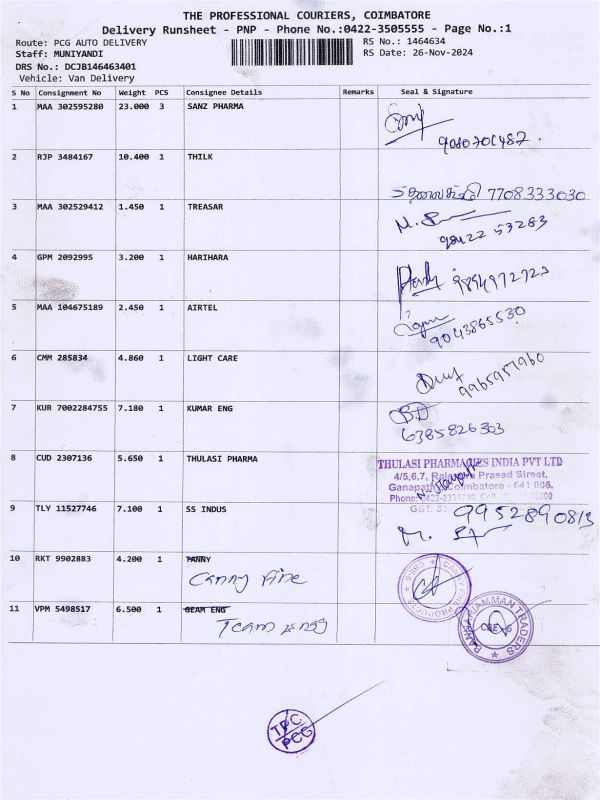 THE PROFESSIONAL COURIERS, COIMBATORE
Delivery Runsheet - PNP - Phone No.:0422-3505555 - Page No.:1
Route: PCG AUTO DELIVERY
RS No.: 1464634
Staff: MUNIYANDI
RS Date: 26-Nov-2024
DRS No.: DCJB146463401
Vehicle: Van Delivery
S No Consignment No Weight PCS Consignee Details Remarks Seal & Signature
1 MAA 302595280 23.000 3 SANZ PHARMA
2 RJP 3484167 10.400 1 THILK
7708333030
3 MAA 302529412 1.450 1 TREASAR
98422 53283
4 GPM 2092995 3.200 1 HARIHARA
9894972723
5 MAA 104675189 2.450 1 AIRTEL
9043865530
6 CMM 285834 4.860 1 LIGHT CARE
9965957960
7 KUR 7002284755 7.180 1 KUMAR ENG
6385826303
8 CUD 2307136 5.650 1 THULASI PHARMA
THULASI PHARMACIES INDIA PVT LTD
4/5,6,7, Prasad Street,
Ganapathy Coimbatore - 641 006.
9 TLY 11527746 7.100 1 SS INDUS
9952890813
10 RKT 9902883 4.200 1 TANNY
Canny Fire
11 VPM 5498517 6.500 1 GEAM ENG
Team Engg
BANNARIAMMAN TRADERS
CBE-6
TPC
PCG